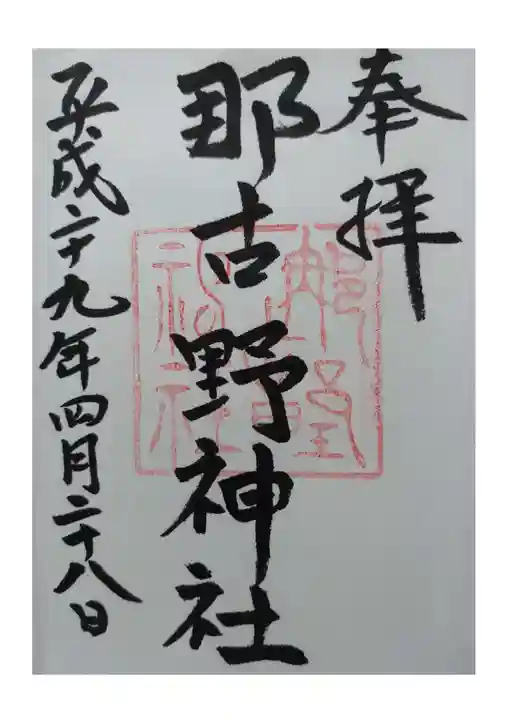 奉拝
那古野神社
平成二十九年四月二十八日